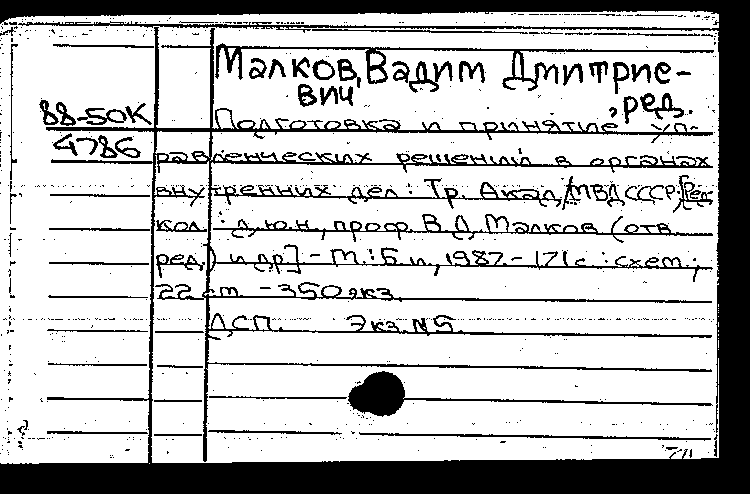 Малков, Вадим Дмитрие-
вич
, ред.
88-50К
4786
Подготовка и принятие уп-
равленческих решений в органах
внутренних дел : Тр. Акад./МВД СССР; [Ред
кол : д.ю.н., проф. В.Д. Малков (отв.
ред.) и др.] - М. : Б.и, 1987. - 171 с : схем.;
22 см. - 350 экз.
ДСП. Экз. N5.